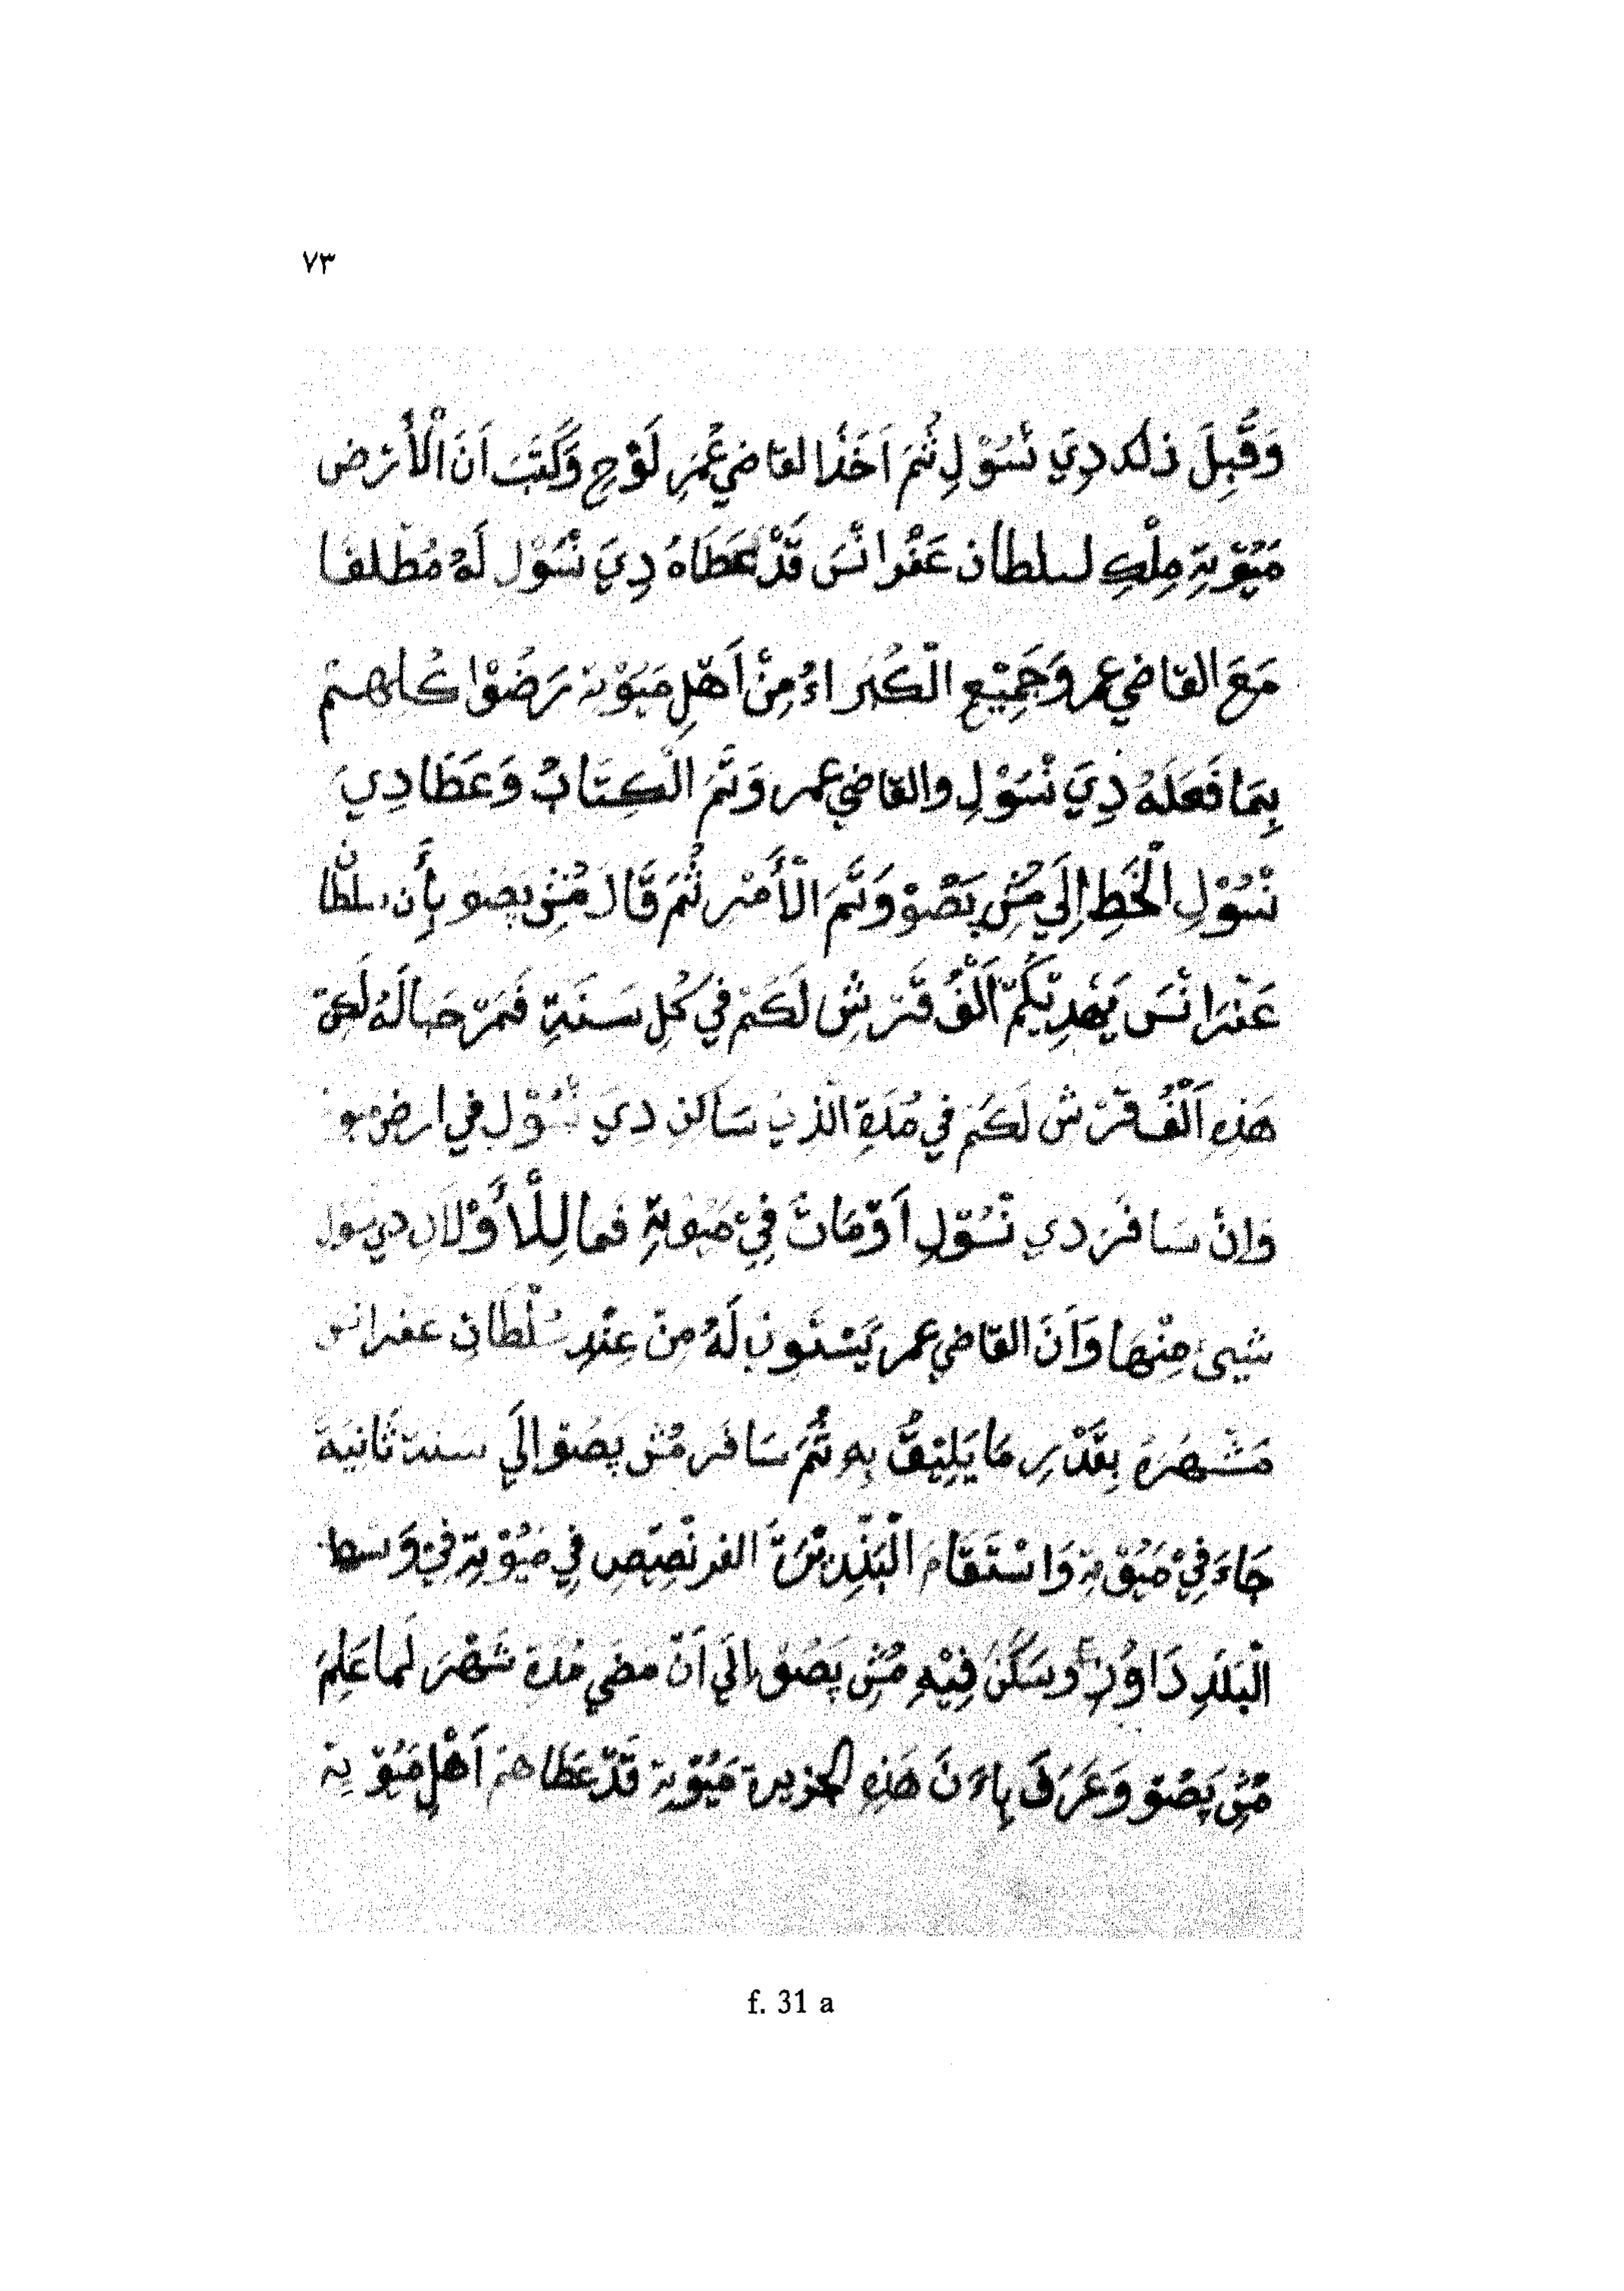 ٧٣
وَقَبِلَ ذلك دِيَ نْسُوْلِ ثُمَ اَخَذَا القاضي عُمَرِ لَوْحِ وَكَتَبَ اَنَ الْأَرْض
مَيُوْتِةِ مِلْكِ لسلطان عَفْرانْسَ قَدْ عَطَاهُ دِيَ نْسَوْل لَهُ مُطْلقا
مَعَ القاضي عمر وَجَمِيْعِ الْكُبَراءُ مِنْ اَهْلِ مَيَوْتة رَضُوْا كلهم
بِمَا فَعَلَهُ دِيَ نْسَوْلِ والقاضي عمر وَتَمَ الْكِتَابُ وَعَطَا دِيَ
نْسُوْلِ الْخَطِ اِلَي مُسْ بَصُوْ وَتَمَ الْأَمْر ثُمَ قَال مُسْ بَصو بِأَن سلطان
عَفْرَانْسَ يَهْدِيْكُمْ اَلْفُ قَرْشِ لَكُمْ فِي كُلِ سَنَةِ فَمَرْحَبا لَهُ لَكِنْ
هَذِهِ اَلْفُ قَرْش لَكُمْ في مُدَةِ الَّذِي سَاكن دِيَ نْسُوْل في ارض
وَإِنْ سَافَرَ دي نْسُوْلِ اَوْ مَاتَ فِيْ مَيُوْتِةِ فما لِلْأَوْلَاد دي سول
شيئ مِنْهَا وَاَنَ القاضي عمر يَسْتَون لَهُ مِنْ عِنْدِ سُلْطَانِ عفرانس
مَشْهَرَهُ بِقَدْرِ مَا يَلِيْقُ بِهِ ثُمَ سَافَر مُسْ بَصُوْ اِلَي سنة ثَانِيَة
جَاءَ فِيْ مَيُوْتة وَاسْتَقَامَ الْبَنْدِيْرَةَ الفرنْصِيْصِ فِي مَيُوْتِةِ فِيْ وَسط
الْبَلَدِ دَاوُنِ وسَكَنَ فِيْهِ مُسْ بَصُوْ اِلَي اَنْ مَضَي مُدَةَ شَهْرَ لَما عَلِمَ
مُسْ بَصْو وَعَرَفَ بِاءَنَ هَذِهِ الجزيرة مَيُوْتة قَدْ عَطَاهمْ اَهْلِ مَيُوْتِة
f. 31 a